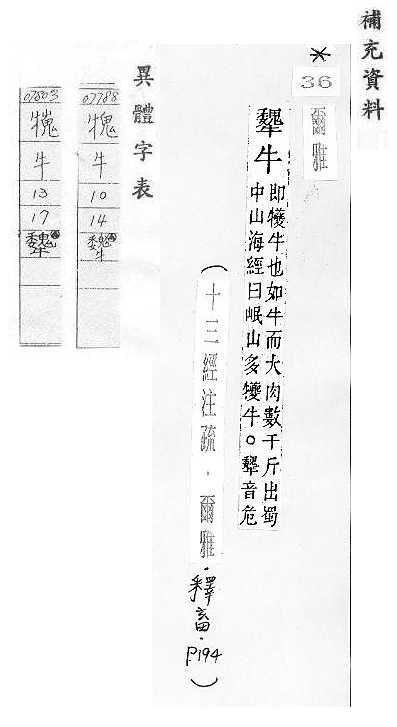 補充資料
*
36
爾雅
犩牛
即犪牛也如牛而大肉數千斤出蜀
中山海經曰岷山多犪牛○犩音危
(十三經注疏．爾雅．釋畜．P194)
異體字表
07788
牛
10
14
犩
07803
牛
13
17
犩